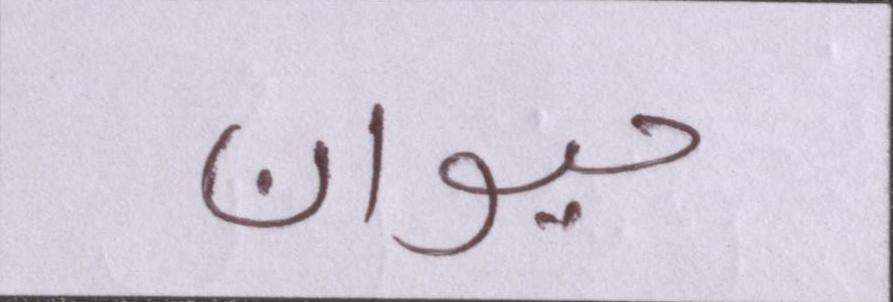 حيوان